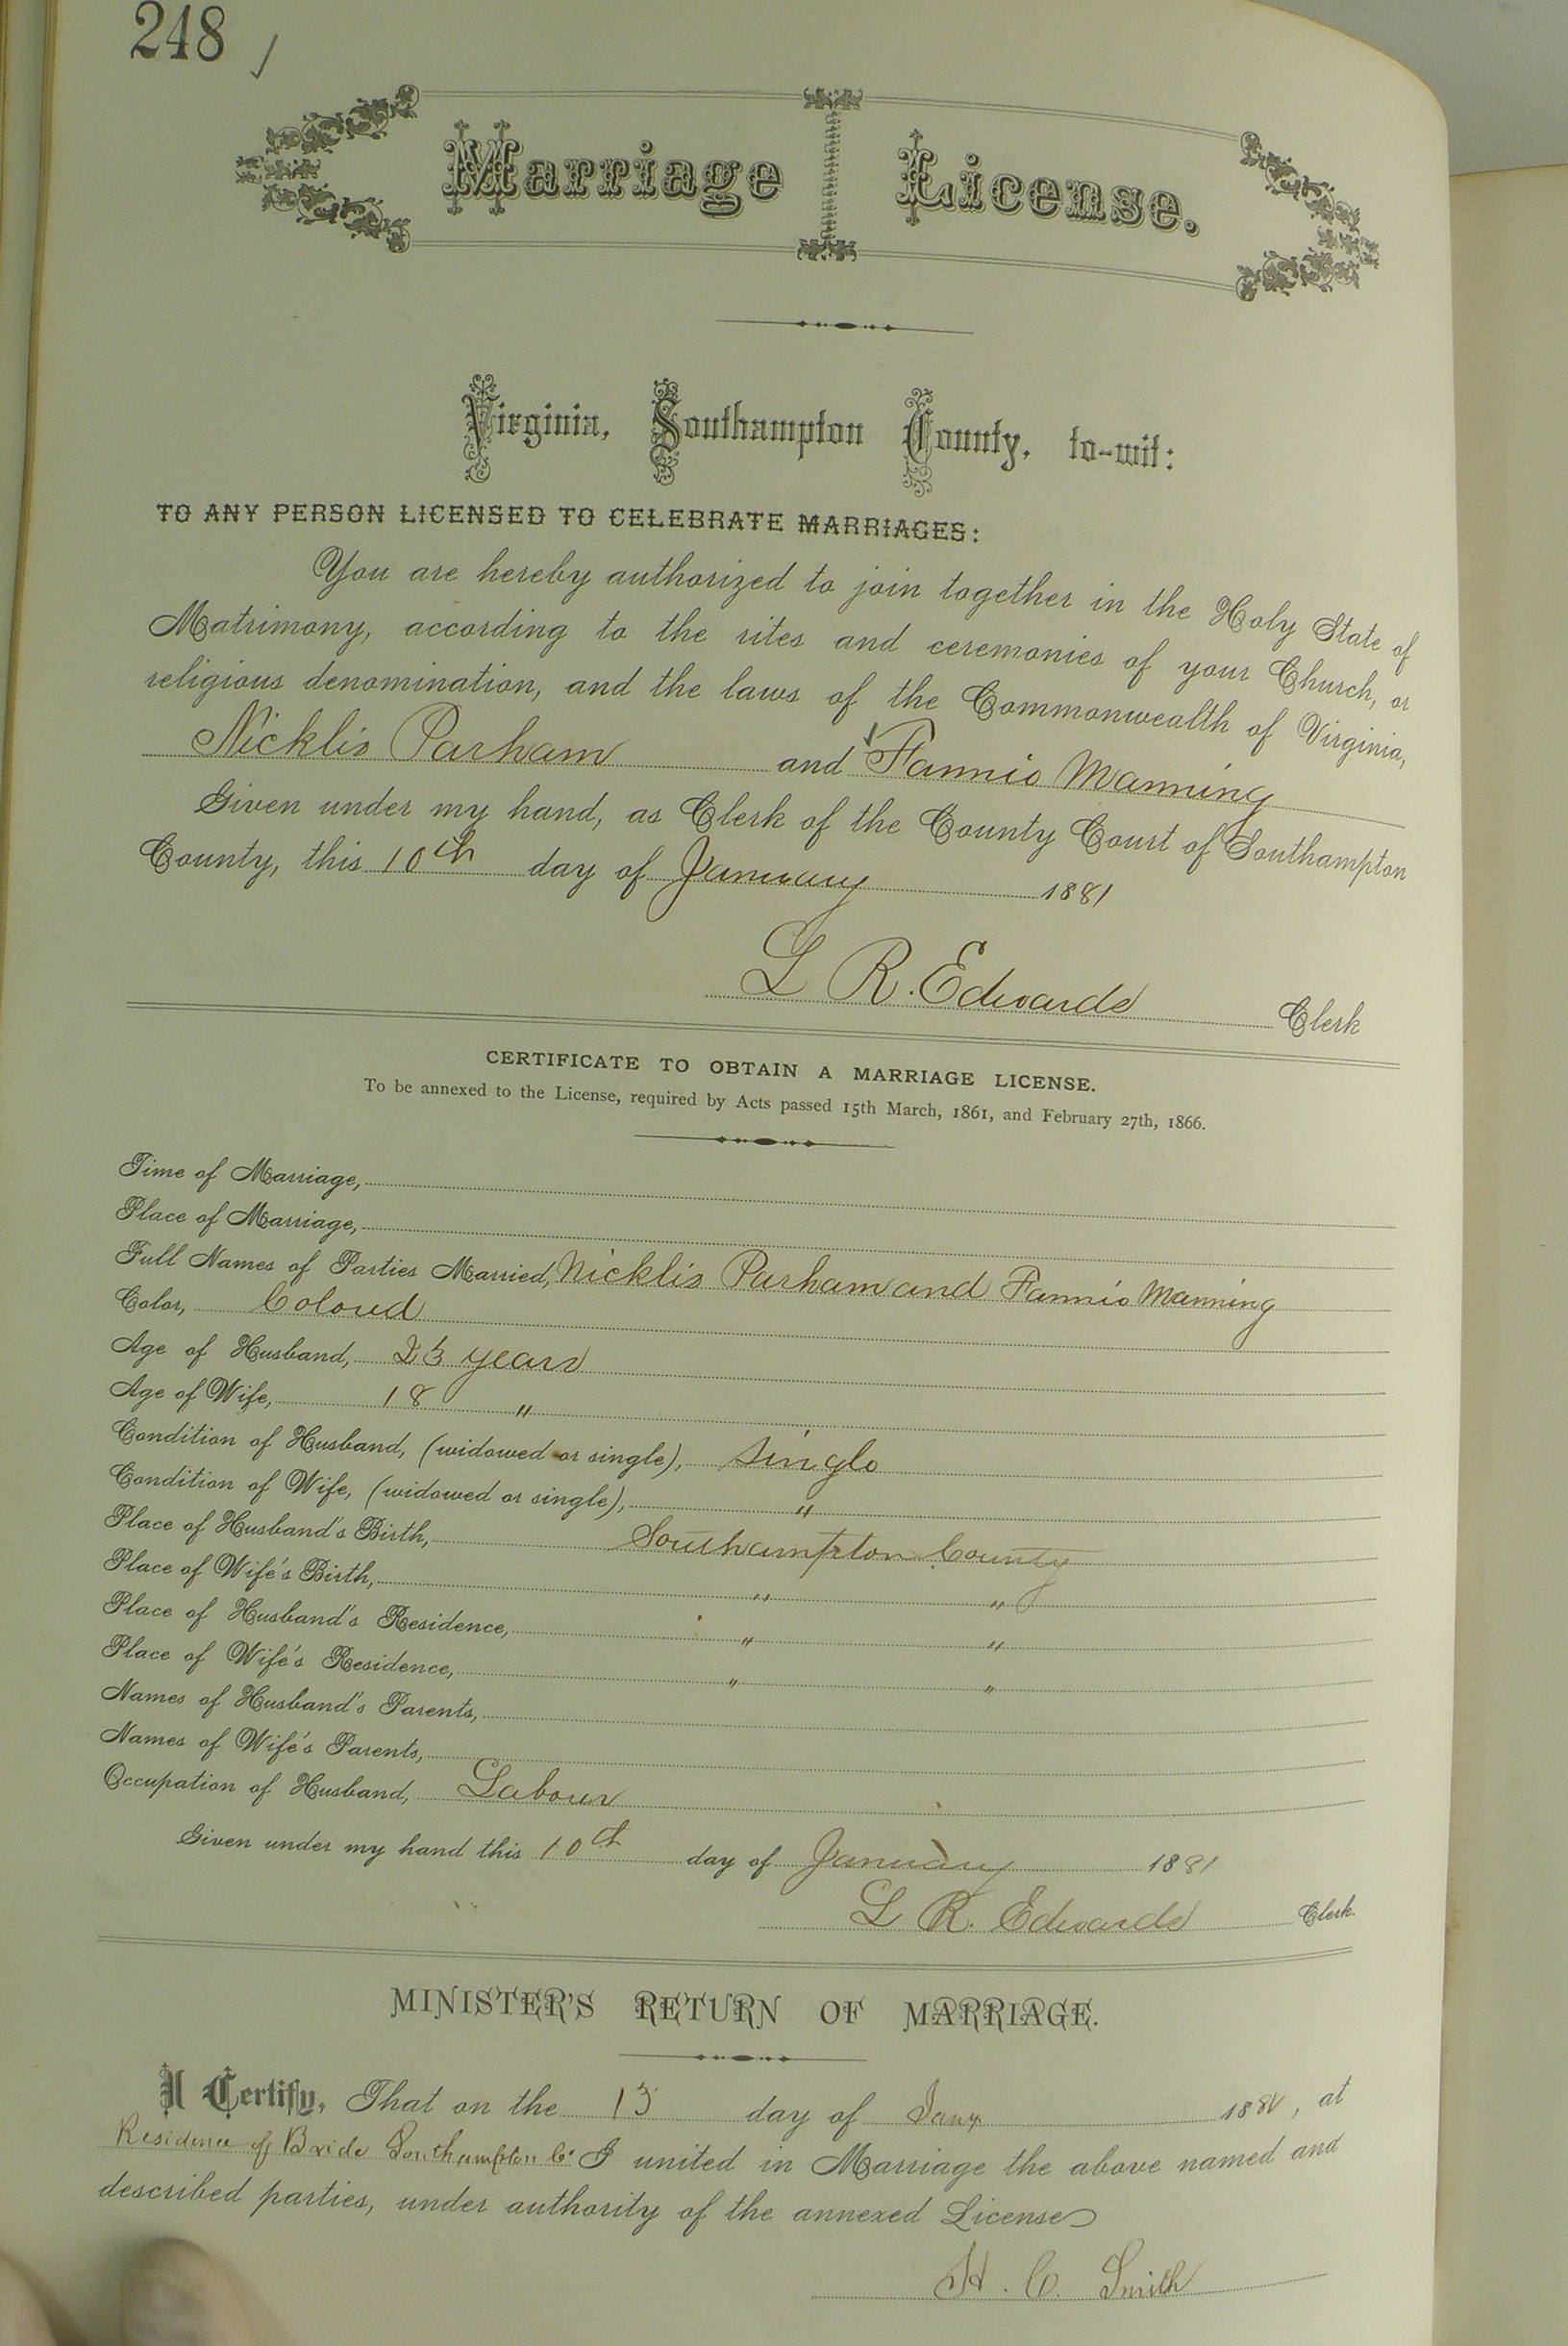 248
Marriage License.
Virginia, Southampton County, to-wit:
TO ANY PERSON LICENSED TO CELEBRATE MARRIAGES:
You are hereby authorized to join together in the Holy State of
Matrimony, according to the rites and ceremonies of your Church, or
religious denomination, and the laws of the Commonwealth of Virginia,
Nicklis Parham and Fannie Manning
Given under my hand, as Clerk of the County Court of Southampton
County, this 10th day of January 1881
L R. Edwards Clerk
CERTIFICATE TO OBTAIN A MARRIAGE LICENSE.
To be annexed to the License, required by Acts passed 15th March, 1861, and February 27th, 1866.
Time of Marriage,
Place of Marriage,
Full Names of Parties Married, Nicklis Parham and Fannie Manning
Color, Colored
Age of Husband, 23 years
Age of Wife, 18 "
Condition of Husband, (widowed or single), single
Condition of Wife, (widowed or single), "
Place of Husband's Birth, Southampton County
Place of Wife's Birth, " "
Place of Husband's Residence, " "
Place of Wife's Residence, " "
Names of Husband's Parents,
Names of Wife's Parents,
Occupation of Husband, Labour
Given under my hand this 10th day of January 1881
L R. Edwards Clerk.
MINISTER'S RETURN OF MARRIAGE.
I Certify, That on the 13 day of Jany 1881, at
Residence of Bride Southampton Co I united in Marriage the above named and
described parties, under authority of the annexed License
H. C. Smith